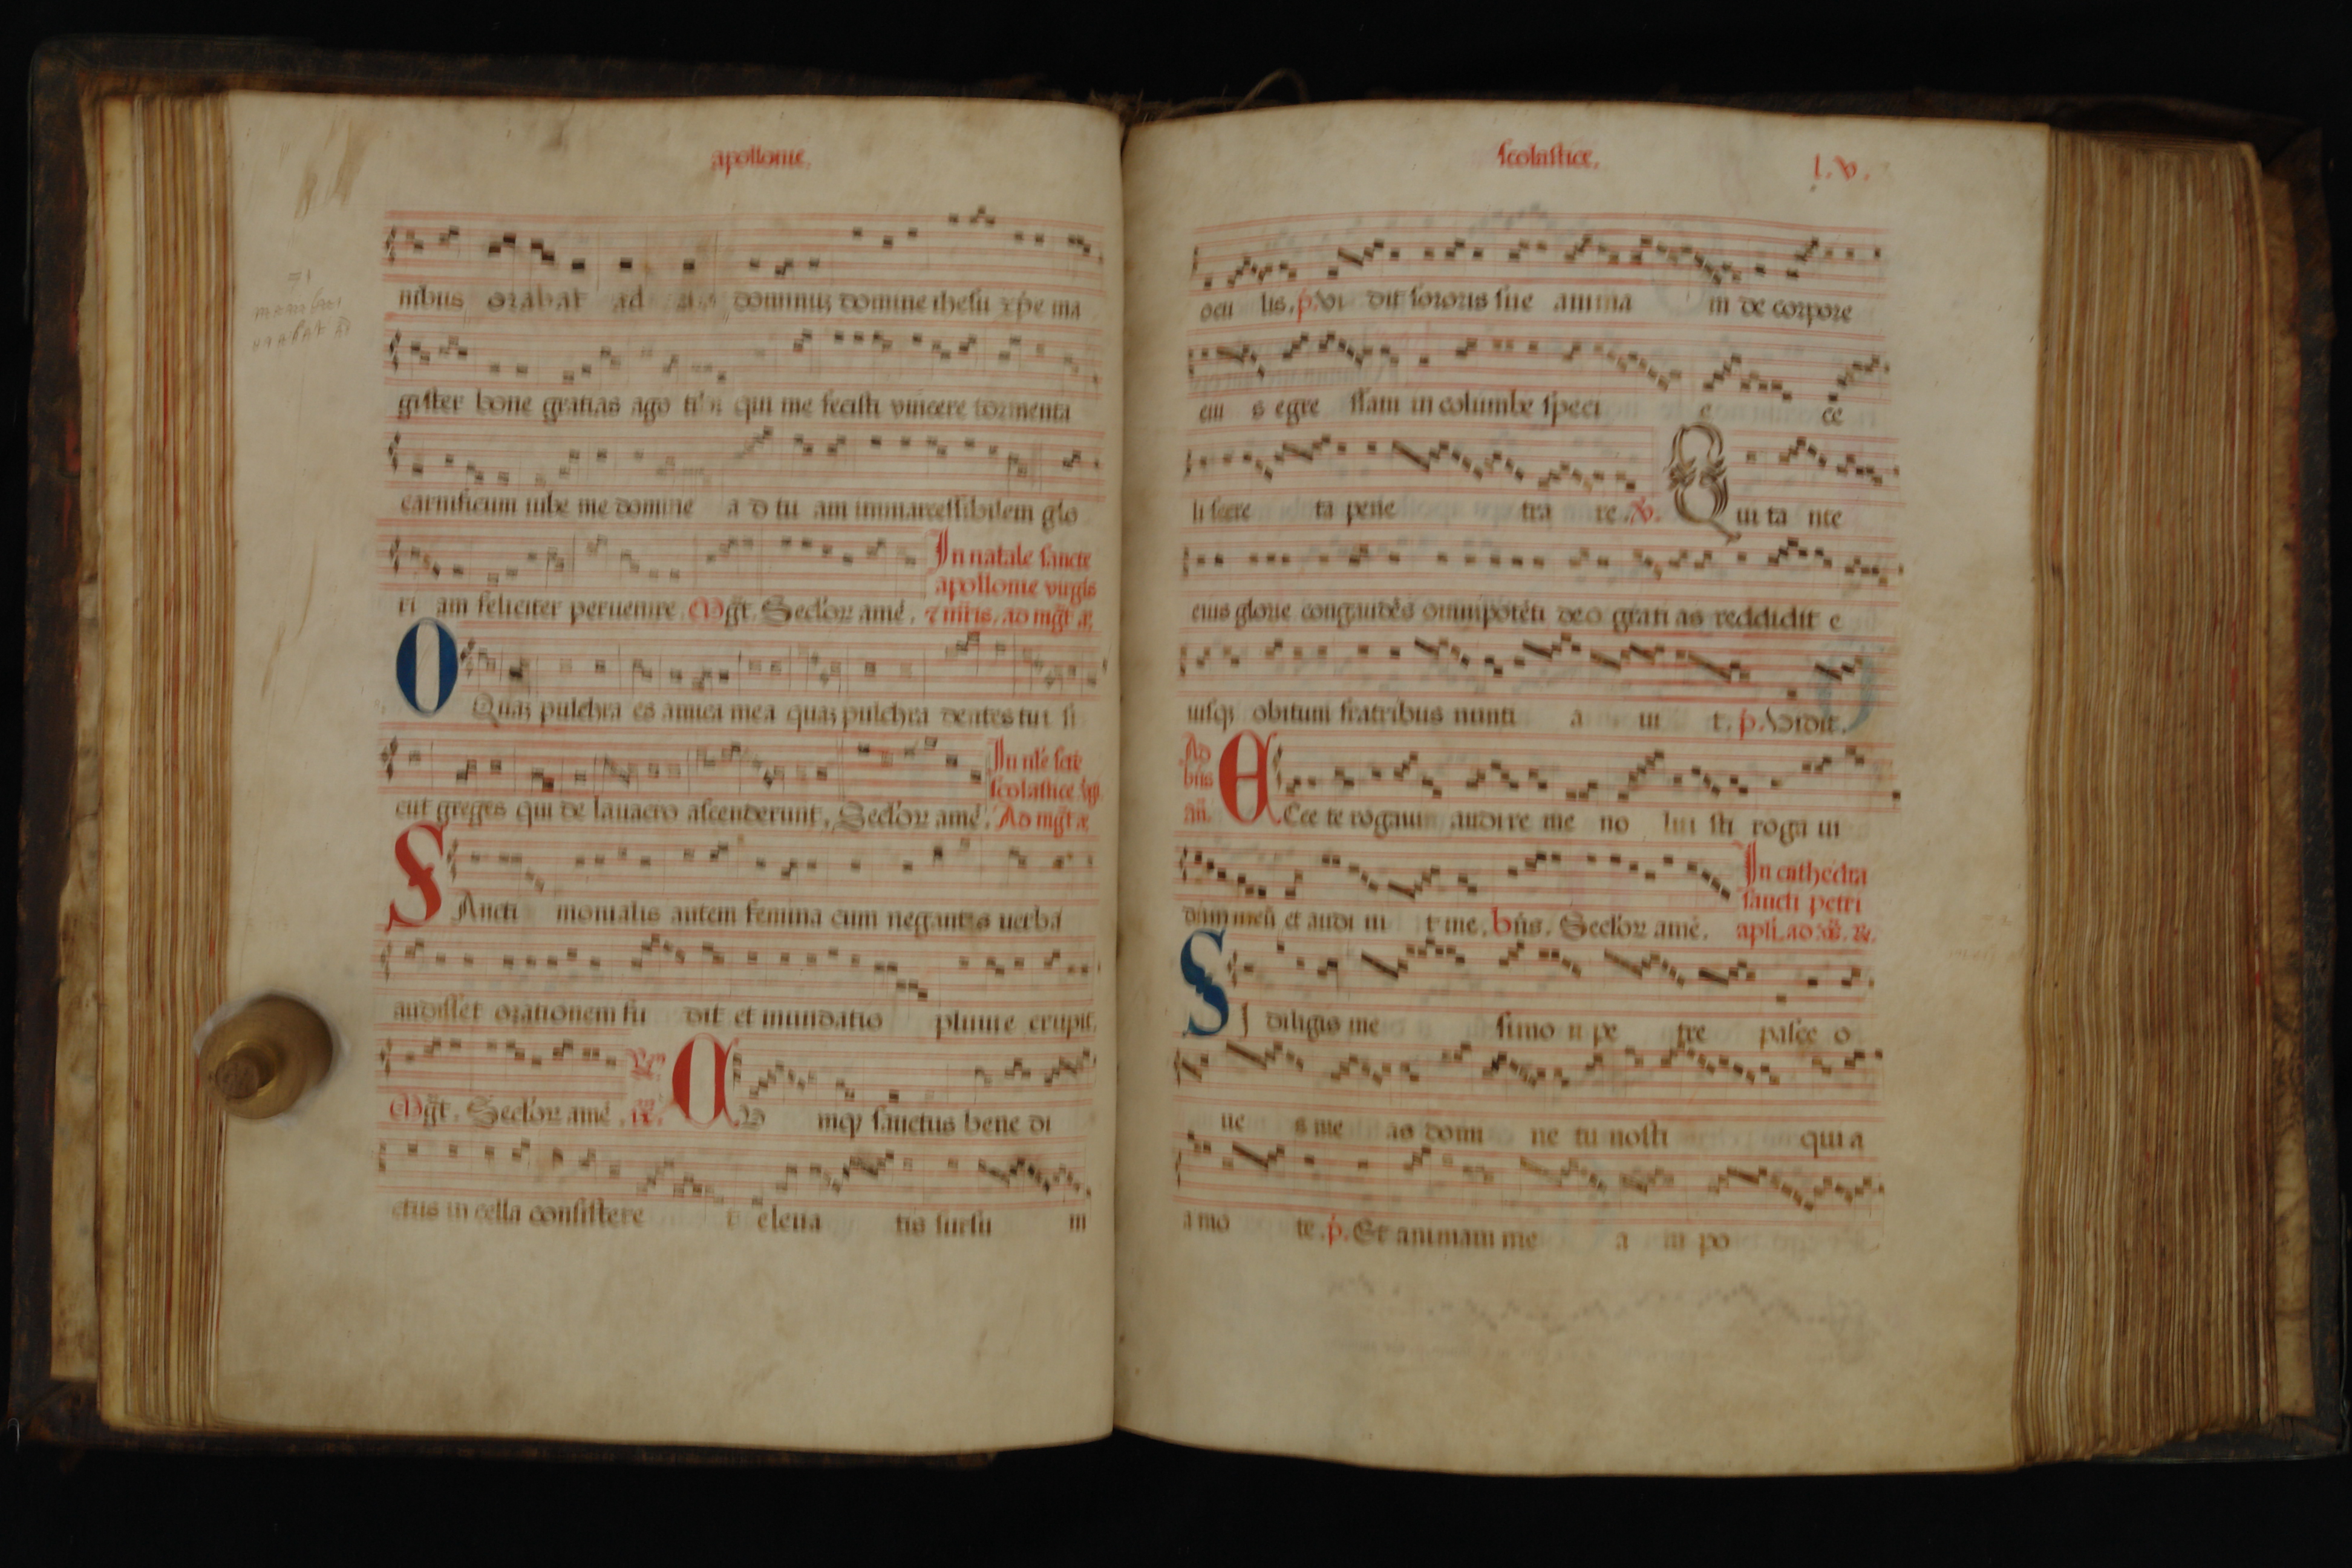 apollonie.
nibus orabat ad dominuȝ domine ihesu xp̄e ma
gister bone gratias ago tibi qui me fecisti vincere tormenta
carnificum iube me domine a d tu am immarcessibilem glo
ri am feliciter peruenire. Mg̃t. Seclоꝝ amē.
In natale sancte
apollonie virgis
⁊ mr̃is. ad mg̃t æ.
O Quaȝ pulchra es amica mea quaȝ pulchra dentes tui si
cut greges qui de lauacro ascenderunt. Secloꝝ amē.
In nłe scẽ
scolastice
Ad mg̃t æ
SAncti monialis autem femina cum negantis uerba
audisset orationem fu dit et inundatio pluuie erupit.
Mg̃t. Secloꝝ amē. ix.
CUmqꝫ sanctus bene di
ctus in cella consistere t eleua tis sursu m
scolastice. l.v.
ocu lis. p̄. Vi dit sororis sue anima m de corpore
eiu s egre ssam in columbe speci e ce
li secre ta pene tra re. v. Qui ta nte
eius glorie congaudēs omnipotēti deo grati as reddidit e
iusqꝫ obitum fratribus nunti a ui t. p̄. Vidit.
Ad
bñs
añ.
ECce te rogaui audire me no lui sti roga ui
dñm meū et audi ui t me. bñs. Secloꝝ amē.
In cathedra
sancti petri
apłi. ad
SI diligis me simo n pe tre pasce o
ue s me as domi ne tu nosti qui a
a mo te. p̄. Et animam me a m po